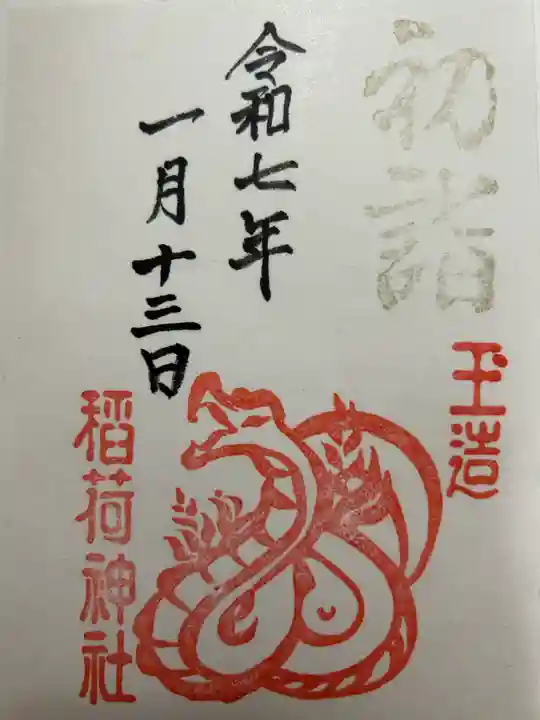 初詣
令和七年
一月十三日
玉造
稲荷神社